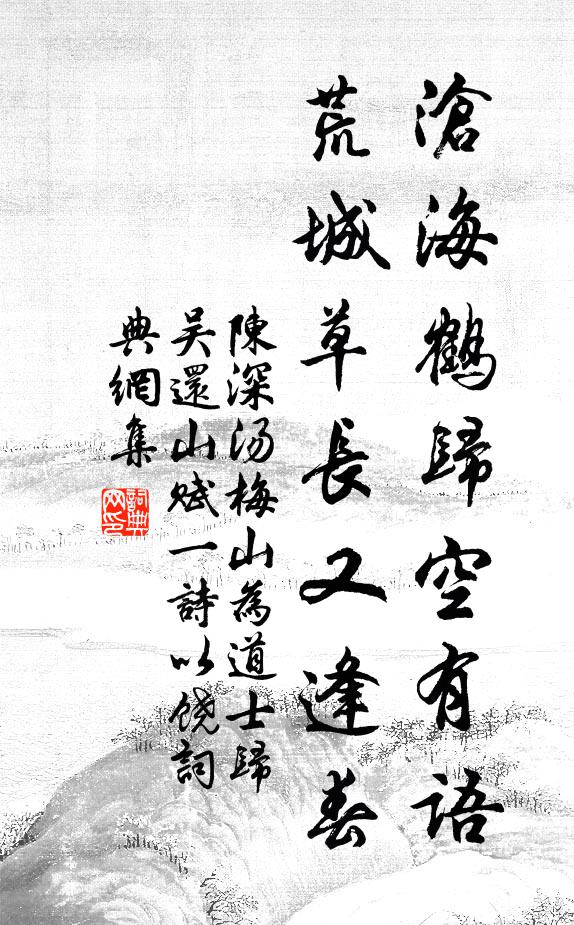 滄海鶴歸空有語
荒城草長又逢春
陳深湯梅山為道士歸
吴還山賦一詩以餞詞
典網集
詞典
网印